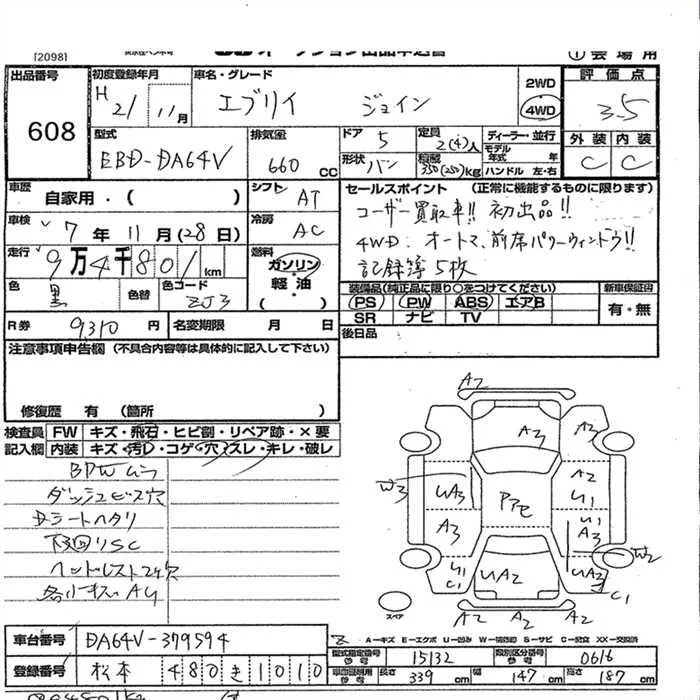 [2098]
① 会場用
出品番号
608
初度登録年月
H 21年 11月
車名・グレード
エブリイ ジョイン
2WD
4WD
評価点
3.5
外装 内装
C C
型式
EBD-DA64V
排気量
660 cc
ドア 5
形状 バン
定員 2(4)人
積載 350(250)kg
ディーラー・並行
モデル年式 年
ハンドル 左・右
車歴
自家用・( )
シフト AT
車検 7年 11月(28日)
冷房 AC
走行 9万4千801km
燃料
ガソリン・軽油
( )
色 黒
色替
色コード ZJ3
R券 9310円
名変期限 月 日
セールスポイント (正常に機能するものに限ります)
ユーザー買取車!! 初出品!!
4WD. オートマ、前席パワーウィンドウ!!
記録簿5枚
装備品(純正品に限り○をつけてください)
PS PW ABS エアB
SR ナビ TV
新車保証書
有・無
後日品
注意事項申告欄 (不具合内容等は具体的に記入して下さい)
修復歴 有 (箇所 )
検査員記入欄
FW キズ・飛石・ヒビ割・リペア跡・×要
内装 キズ・汚レ・コゲ・穴・スレ・キレ・破レ
BPWムラ
ダッシュビス穴
Dシートヘタリ
下回リSC
ヘッドレスト2ケ欠
各小キズAG
A2
A3 A3
W3 UA3 A2 U1
Pアセ
A3 U1 A3
W2
U1 C1 UA2 UA2 C1
A2 A2 A2
スペア
A-キズ E-エクボ U-凹み W-補修跡 S-サビ C-腐食 XX-交換済
車台番号 DA64V-379594
登録番号 松本 480 き 1010
型式指定番号 参考 15132
類別区分番号 参考 0616
車両寸法 参考 長さ 339cm 幅 147cm 高さ 187cm